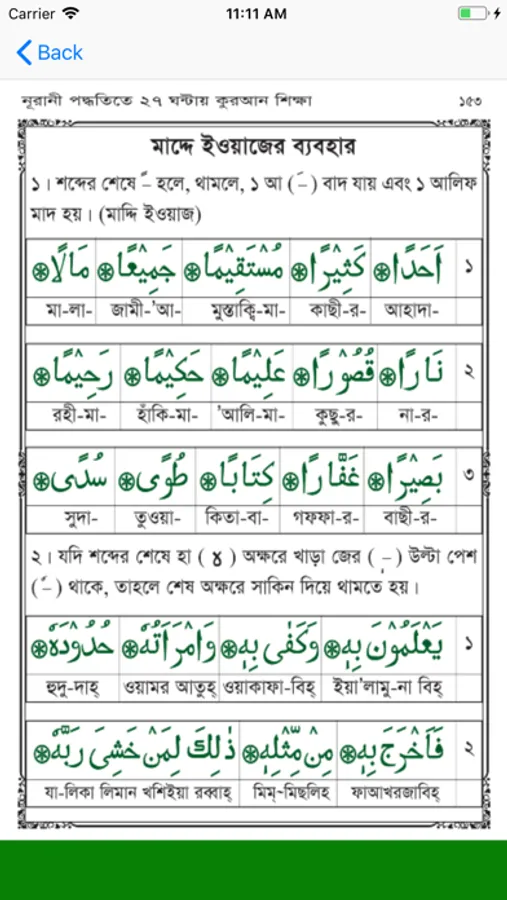 Carrier 11:11 AM
Back
নূরানী পদ্ধতিতে ২৭ ঘন্টায় কুরআন শিক্ষা ১৫৩
মাদ্দে ইওয়াজের ব্যবহার
১। শব্দের শেষে ً হলে, থামলে, ১ আ (َ) বাদ যায় এবং ১ আলিফ
মাদ হয়। (মাদ্দি ইওয়াজ)
اَحَدًا۞ كَثِيْرًا۞ مُسْتَقِيْمًا۞ جَمِيْعًا۞ مَالًا۞ ১
মা-লা- জামী-'আ- মুস্তাক্বি-মা- কাছী-র- আহাদা-
نَارًا۞ قُصُوْرًا۞ عَلِيْمًا۞ حَكِيْمًا۞ رَحِيْمًا۞ ২
রহী-মা- হাঁকি-মা- 'আলি-মা- কুছু-র- না-র-
بَصِيْرًا۞ غَفَّارًا۞ كِتَابًا۞ طُوًى۞ سُدًى۞ ৩
সুদা- তুওয়া- কিতা-বা- গফফা-র- বাছী-র-
২। যদি শব্দের শেষে হা ( ४ ) অক্ষরে খাড়া জের (ٖ) উল্টা পেশ
(ٗ) থাকে, তাহলে শেষ অক্ষরে সাকিন দিয়ে থামতে হয়।
يَعْلَمُوْنَ بِهٖ۞ وَكَفٰى بِهٖ۞ وَامْرَاَتُهٗ۞ حُدُوْدَهٗ۞ ১
হুদু-দাহ্ ওয়ামর আতুহ্ ওয়াকাফা-বিহ্ ইয়া'লামু-না বিহ্
فَاَخْرَجَ بِهٖ۞ مِنْ مِّثْلِهٖ۞ ذٰلِكَ لِمَنْ خَشِىَ رَبَّهٗ۞ ২
যা-লিকা লিমান খশিইয়া রব্বাহ্ মিম্~মিছলিহ ফাআখরজাবিহ্